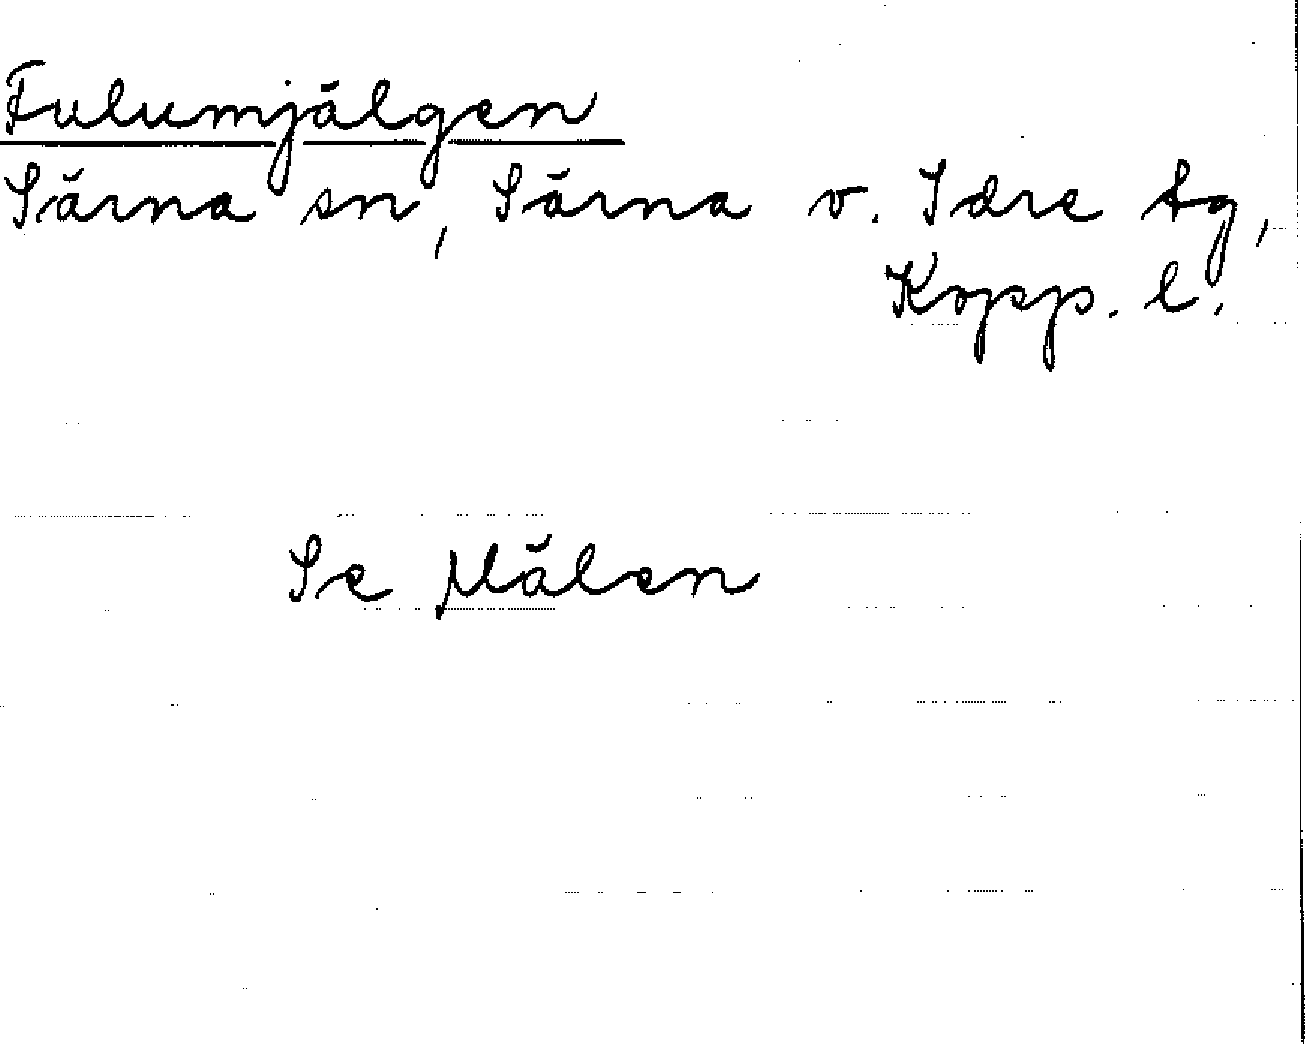 Fulumjälgen
Särna sn, Särna o. Idre tg,
Kopp. l.
Se Mälen